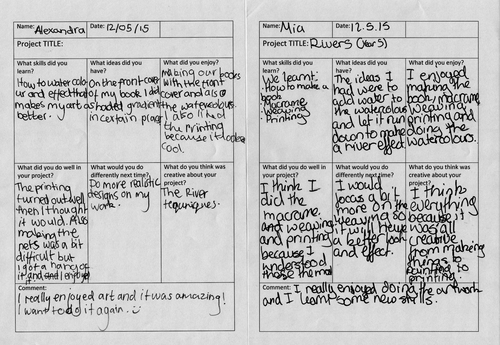 Name: Alexandra Date: 12/05/15
Project TITLE:
What skills did you learn?
How to water colour and effect that makes my art as better.
What ideas did you have?
On the front cover of my book I did shaded gradient in certain
What did you enjoy?
Making our books with the front cover and also the watercolour.
I also liked the printing because it looked cool.
What did you do well in your project?
The printing turned out well then I thought it would. Also making the nets was a bit difficult but I got a hang of it and and I enjoyed it
What would you do differently next time?
Do more realistic designs on my work.
What do you think was creative about your project?
The River techniques.
Comment:
I really enjoyed art and it was amazing!
I want to do it again.
Name: Mia Date: 12.5.15
Project TITLE: Rivers (Year 5)
What skills did you learn?
We learnt:
• How to make a book
• Macrame
• Weaving
• Printing
What ideas did you have?
The ideas I had were to add water to the watercolour and let it run down to make a river effect.
What did you enjoy?
I enjoyed making the book, macrame, weaving, printing and doing the watercolour.
What did you do well in your project?
I think I did the macrame and weaving and printing because I understood those the most
What would you do differently next time?
I would focus a bit more on the weaving so it will have a better look and effect.
What do you think was creative about your project?
I think everything because it was all creative from making things to painting to printing.
Comment:
I really enjoyed doing the art work and I learnt some new skills.